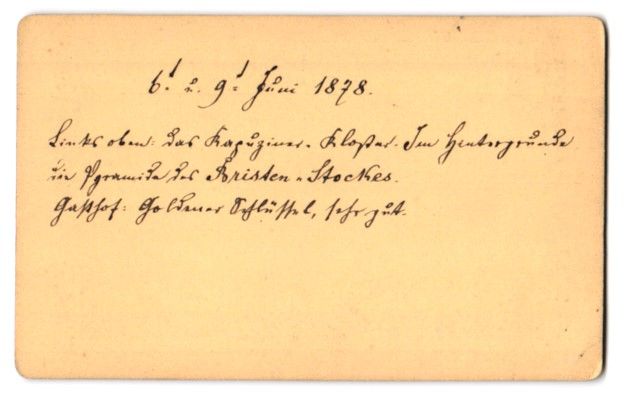 6. u. 9. Juni 1878.
Links oben: das Kapuziner-Kloster. Im Hintergrunde
die Pyramide des Bristen-Stockes.
Gasthof: Goldener Schlüssel, sehr gut.